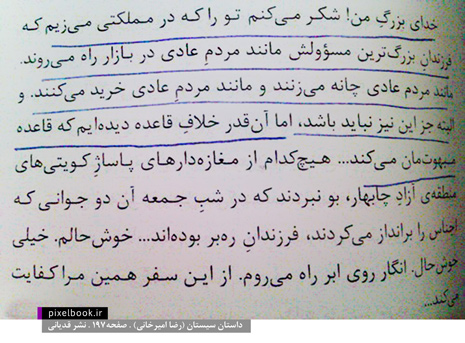 خدای بزرگِ من! شکر می‌کنم تو را که در مملکتی می‌زیم که
فرزندانِ بزرگ‌ترین مسؤولش مانند مردمِ عادی در بازار راه می‌روند.
مانند مردم عادی چانه می‌زنند و مانند مردمِ عادی خرید می‌کنند. و
البته جز این نیز نباید باشد، اما آن‌قدر خلافِ قاعده دیده‌ایم که قاعده
مبهوت‌مان می‌کند... هیچ‌کدام از مغازه‌دارهای پاساژِ کویتی‌های
منطقه‌ی آزادِ چابهار، بو نبردند که در شبِ جمعه آن دو جوانی که
اجناس را برانداز می‌کردند، فرزندانِ ره‌بر بوده‌اند... خوش‌حالم. خیلی
خوش‌حال. انگار روی ابر راه می‌روم. از این سفر همین مرا کفایت
می‌کند...
pixelbook.ir
داستان سیستان (رضا امیرخانی) . صفحه ۱۹۷ . نشر قدیانی